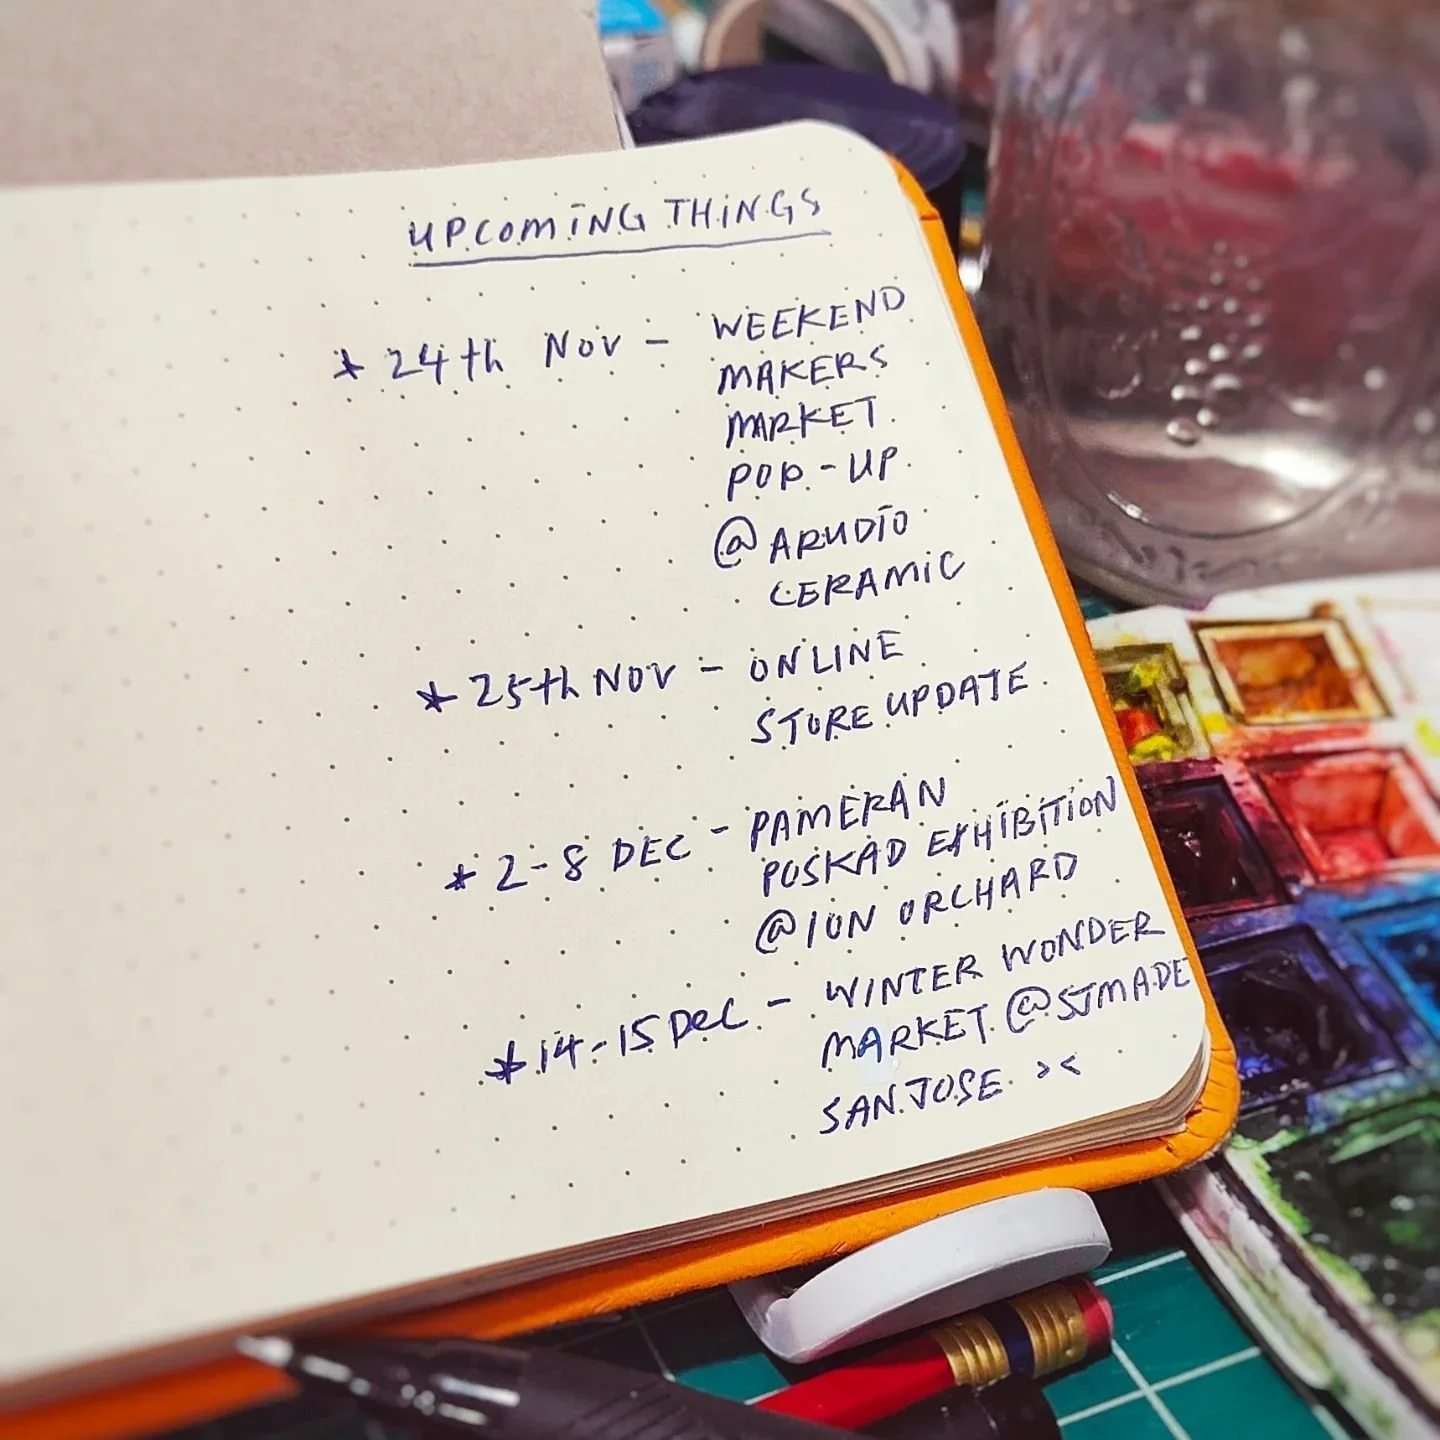 UPCOMING THINGS
* 24th NOV - WEEKEND
MAKERS
MARKET
POP-UP
@ ARUDIO
CERAMIC
* 25th NOV - ONLINE
STORE UPDATE
* 2-8 DEC - PAMERAN
POSKAD EXHIBITION
@ ION ORCHARD
* 14-15 DEC - WINTER WONDER
MARKET @ SJMADE
SAN JOSE ><